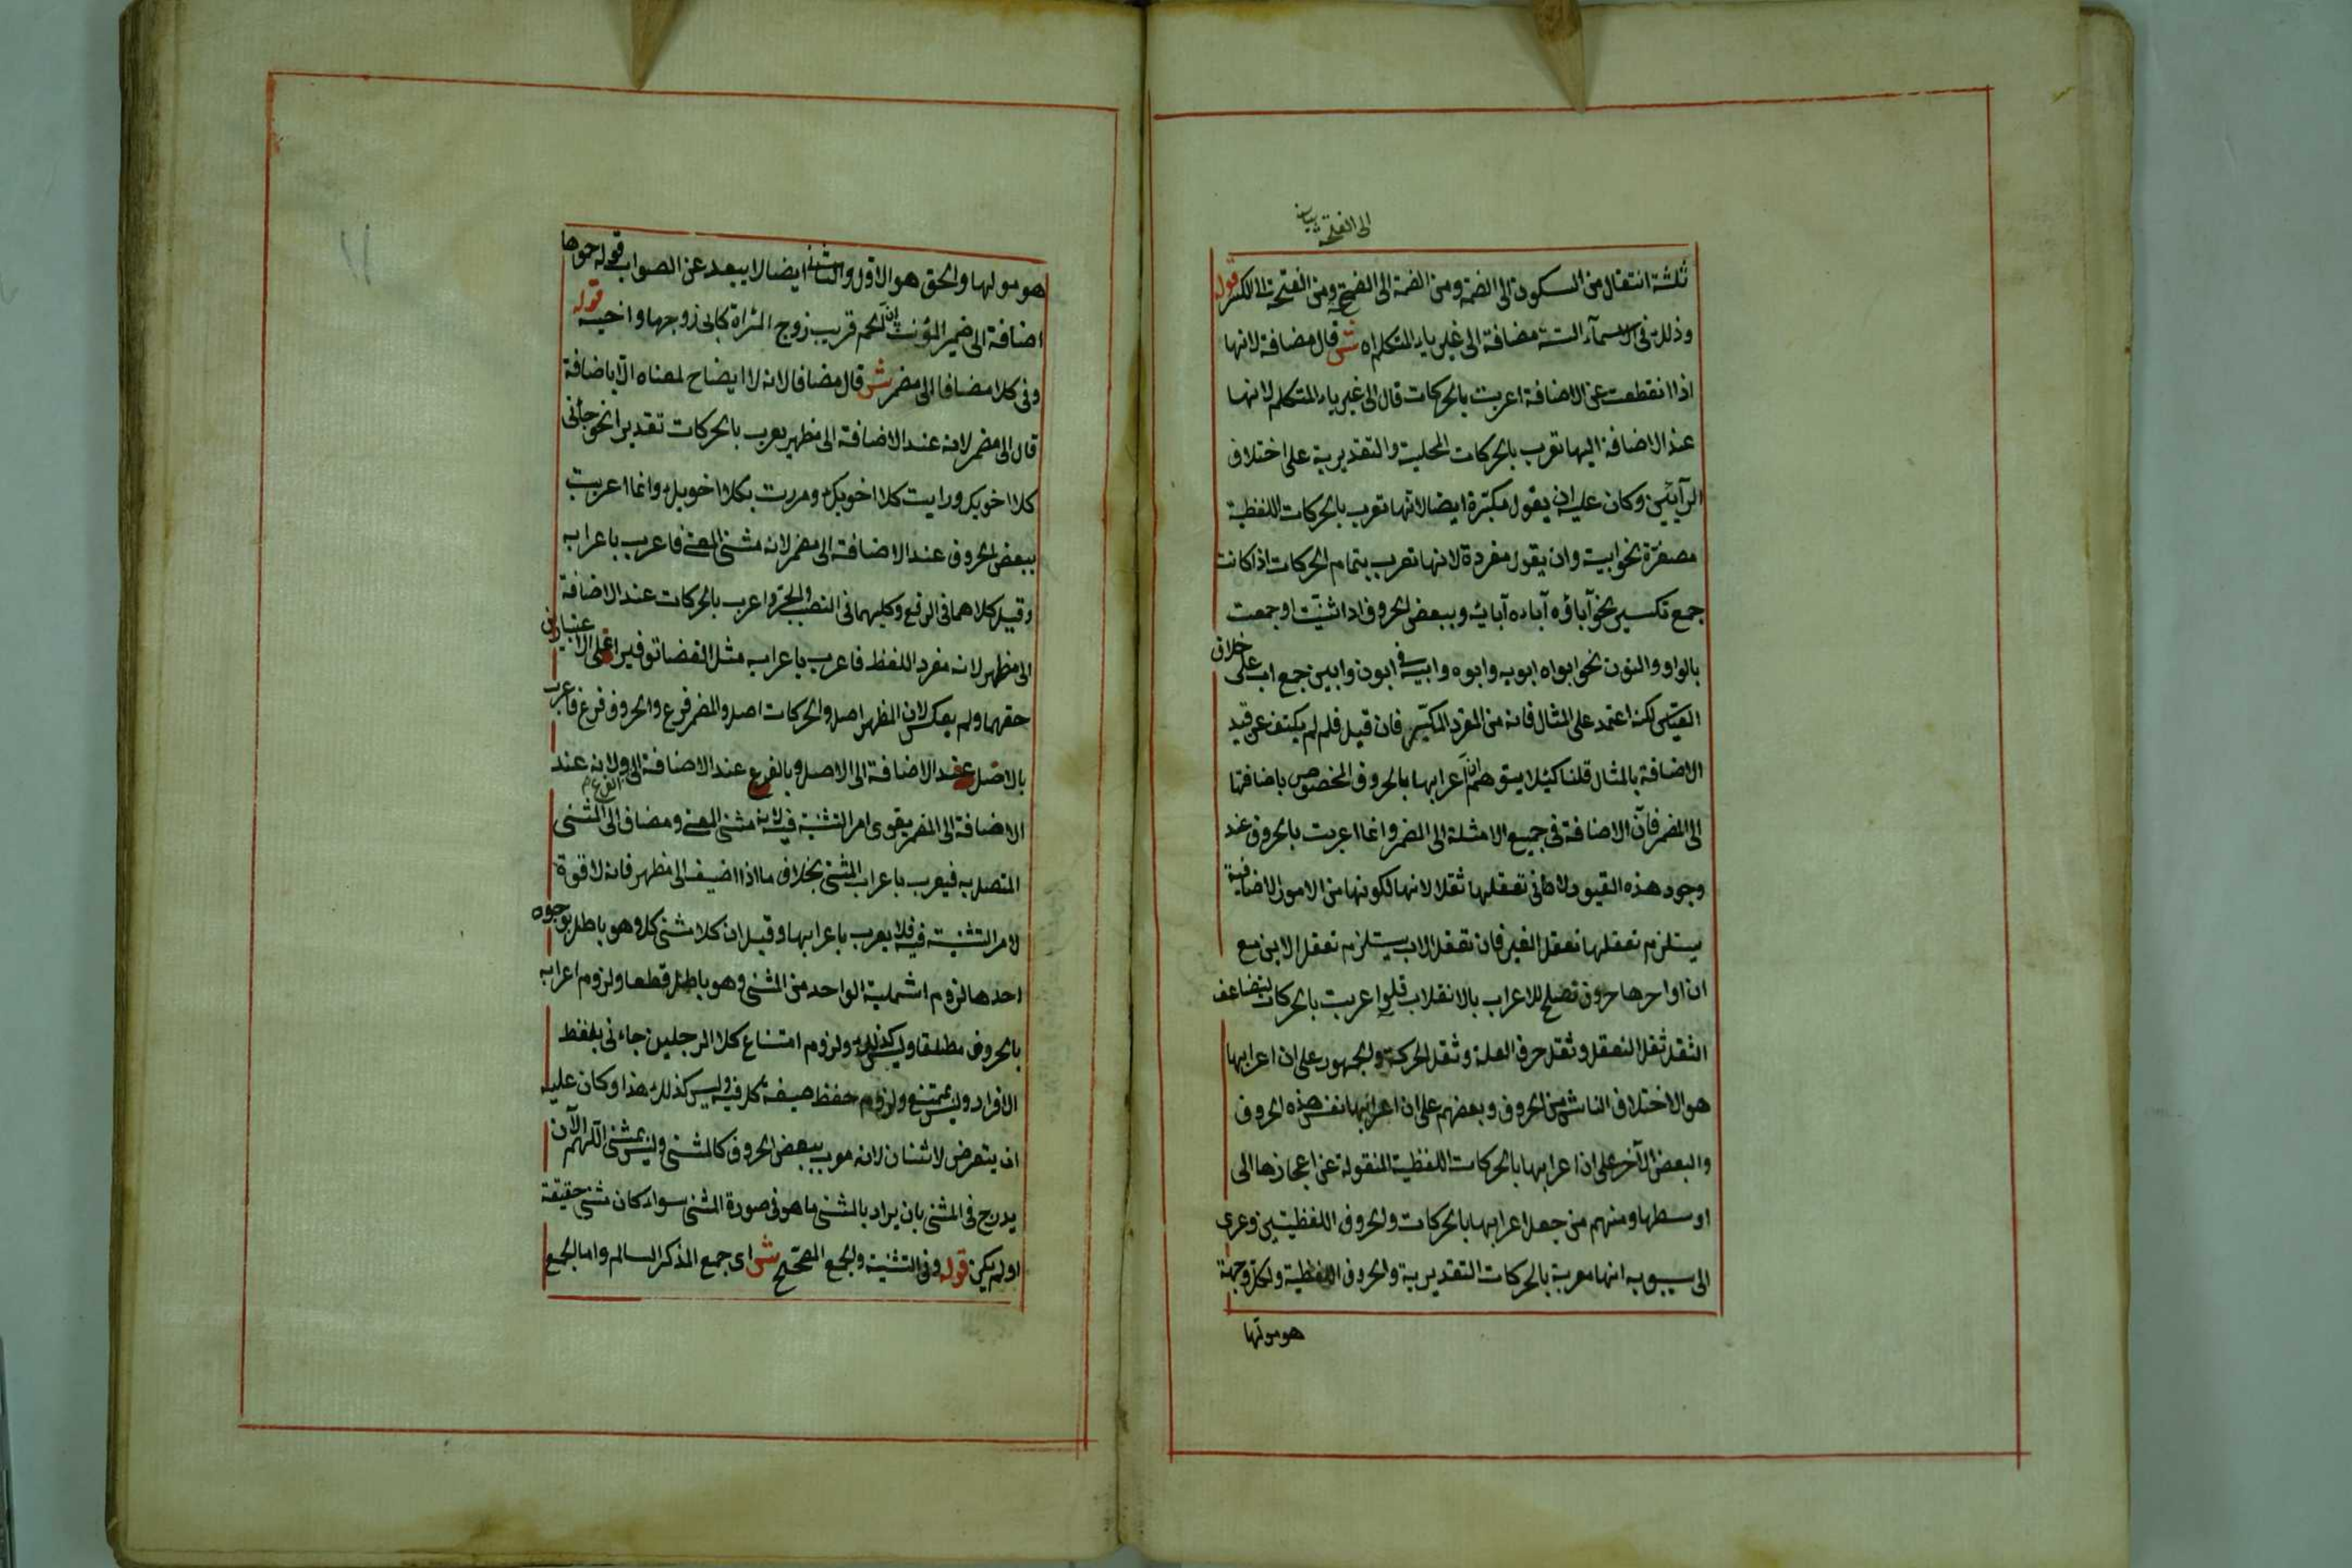 الى الفتحة
ثلثة انتقال من السكون الى الضمة ومن الضمة الى الفتحة ومن الفتحة الى الكسرة قوله
وذلك فى الاسمآء الستة مضافة الى غير ياء المتكلم اه ش قال مضافة لانها
اذا انقطعت عن الاضافة اعربت بالحركات قال الى غير ياء المتكلم لانها
عند الاضافة اليها تعرب بالحركات المحلية والتقديرية على اختلاف
الرآيين وكان عليه ان يقول مكبّرة ايضا لانها تعرب بالحركات اللفظية
مصغّرة نحو ابيه وان يقول مفردة لانها تعرب بتمام الحركات اذا كانت
جمع تكسير نحو آباؤه آباءه آبائه وببعض الحروف اذا ثنيت او جمعت
بالواو والنون نحو ابواه ابويه وابوه وابيه فى ابون وابين جمع اب على خلاف
القياس لكنه اعتمد على المثال فانه من المفرد المكبّر فان قيل فلم لم يكتف عن قيد
الاضافة بالمثال قلنا كيلا يتوهم ان اعرابها بالحروف المخصوص باضافتها
الى المضمر فانّ الاضافة فى جميع الامثلة الى المضمر وانما اعربت بالحروف عند
وجود هذه القيود لان فى تعقلها ثقلا لانها لكونها من الامور الاضافية
يستلزم تعقلها تعقل الغير فان تعقل الاب يستلزم تعقل الابن مع
ان اواخرها حروف تصلح للاعراب بالانقلاب فلو اعربت بالحركات يتضاعف
الثقل ثقل التعقل وثقل حرف العلة وثقل الحركة والجمهور على ان اعرابها
هو الاختلاف الناشى من الحروف وبعضهم على ان اعرابها نفس هذه الحروف
والبعض الآخر على ان اعرابها بالحركات اللفظية المنقولة عن اعجازها الى
اوسطها ومنهم من جعل اعرابها بالحركات والحروف اللفظيتين وعزى
الى سيبويه انها معربة بالحركات التقديرية والحروف اللفظية ولكل وجهة
هو مولها
هو مولها والحق هو الاول والثانى ايضا لا يبعد عن الصواب قوله حموها
اضافة الى ضمير المؤنث لان الحم قريب زوج المرأة كابى زوجها واخيه قوله
وفى كلا مضافا الى مضمر ش قال مضافا لانه لا ايضاح لمعناه الا باضافة
قال الى مضمر لانه عند الاضافة الى مظهر يعرب بالحركات تقديرا نحو جائنى
كلا اخويك ورايت كلا اخويك ومررت بكلا اخويك وانما اعربت
ببعض الحروف عند الاضافة الى مضمر لانه مثنى المعنى فاعرب باعرابه
وقيل كلاهما فى الرفع وكليهما فى النصب والجر واعرب بالحركات عند الاضافة
الى مظهر لانه مفرد اللفظ فاعرب باعرابه مثل العصا توفيرا على الاعتبارين
حقهما ولم يعكس لان المظهر اصل والحركات اصل والمضمر فرع والحروف فرع فاعرب
بالاصل عند الاضافة الى الاصل وبالفرع عند الاضافة الى الفرع ولانه عند
الاضافة الى المضمر يقوى امر التثنية فيه لانه مثنى المعنى ومضاف الى المثنى
المتصل به فيعرب باعراب المثنى بخلاف ما اذا اضيف الى مظهر فانه لا قوة
لامر التثنية فيه فلا يعرب باعرابها وقيل ان كلا مثنى كل وهو باطل بوجوه
احدها لزوم اثنينية الواحد من المثنى وهو باطل قطعا ولزوم اعرابه
بالحروف مطلقا وليس كذلك ولزوم امتناع كلا الرجلين جاءنى بلفظ
الافراد وليس بممتنع ولزوم حفظ صيغة كل فيه وليس كذلك هذا وكان عليه
ان يتعرض لاثنان لانه معرب ببعض الحروف كالمثنى وليس بمثنى اللهم الا ان
يدرج فى المثنى بان يراد بالمثنى ما هو فى صورة المثنى سواء كان مثنى حقيقة
او لم يكن قوله وفى التثنية والجمع المصحح ش اى جمع المذكر السالم واما الجمع